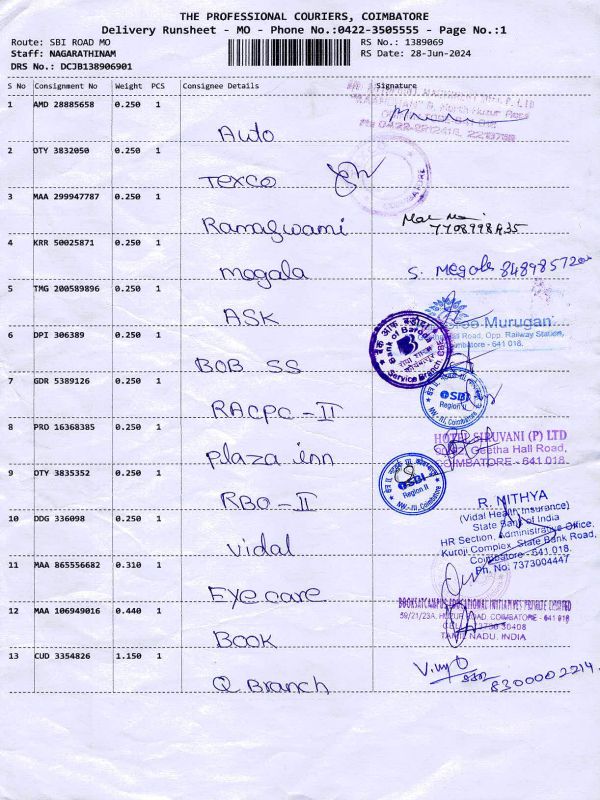 THE PROFESSIONAL COURIERS, COIMBATORE
Delivery Runsheet - MO - Phone No.:0422-3505555 - Page No.:1
Route: SBI ROAD MO RS No.: 1389069
Staff: NAGARATHINAM RS Date: 28-Jun-2024
DRS No.: DCJB138906901
S No Consignment No Weight PCS Consignee Details Signature
1 AMD 28885658 0.250 1
Auto
2 OTY 3832050 0.250 1
Texco
COIMBATORE
3 MAA 299947787 0.250 1
Ramaswami
7708998435
4 KRR 50025871 0.250 1
mogala
S. Megala
5 TMG 200589896 0.250 1
ASK
Sree Murugan
Road, Opp. Railway Station,
Coimbatore - 641 018.
6 DPI 306389 0.250 1
BOB SS
Bank of Baroda
Service Branch
7 GDR 5389126 0.250 1
RACPC - II
SBI
Region II
NW-III, Coimbatore
8 PRO 16368385 0.250 1
plaza inn
HOTEL SIRUVANI (P) LTD
Geetha Hall Road,
COIMBATORE - 641 018.
9 OTY 3835352 0.250 1
RBO - II
SBI
Region II
NW-III, Coimbatore
10 DDG 336098 0.250 1
Vidal
R. NITHYA
(Vidal Health Insurance)
State Bank of India
HR Section, Administrative Office,
Kuroji Complex, State Bank Road,
Coimbatore - 641 018.
Ph. No: 7373004447
11 MAA 865556682 0.310 1
Eye care
12 MAA 106949016 0.440 1
Book
BOOKSATCAMPUS EDUCATIONAL INITIATIVES PRIVATE LIMITED
59/21/23A, HUZUR ROAD, COIMBATORE - 641 018
TAMIL NADU, INDIA
13 CUD 3354826 1.150 1
Q Branch
8300002214